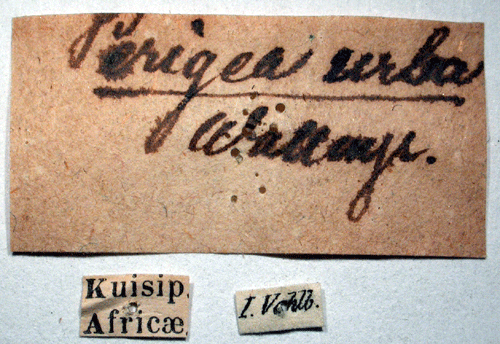 Perigea urba
Wallengr.
Kuisip.
Africæ.
I. Vahlb.